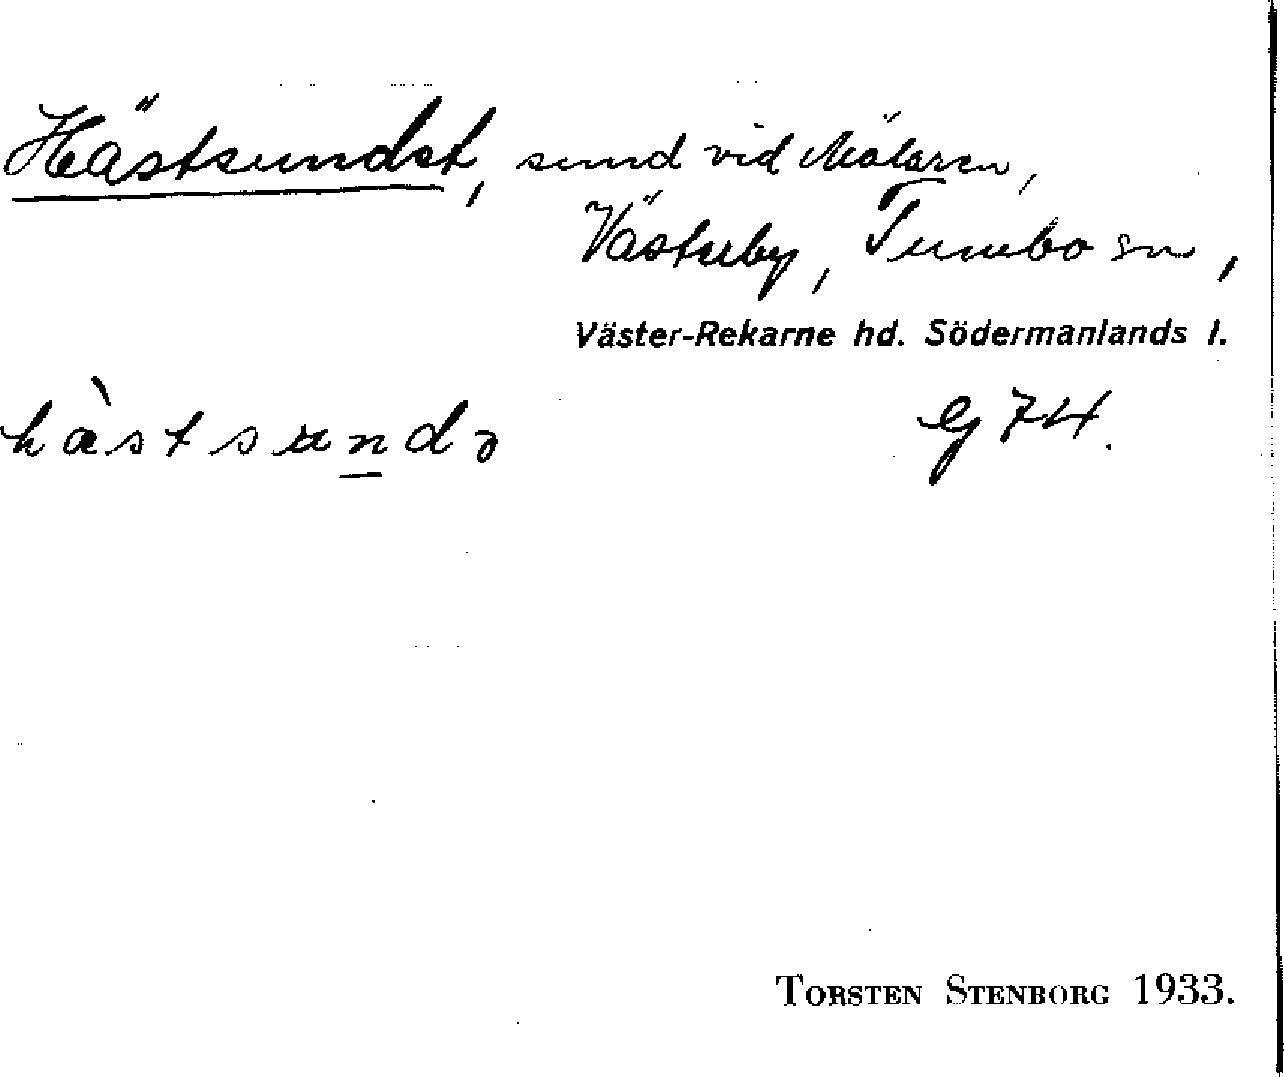 Hästsundet, sund vid Mälaren,
Västerby, Tumbo sn,
Väster-Rekarne hd. Södermanlands l.
hæ̀stsundə G 74.
TORSTEN STENBORG 1933.